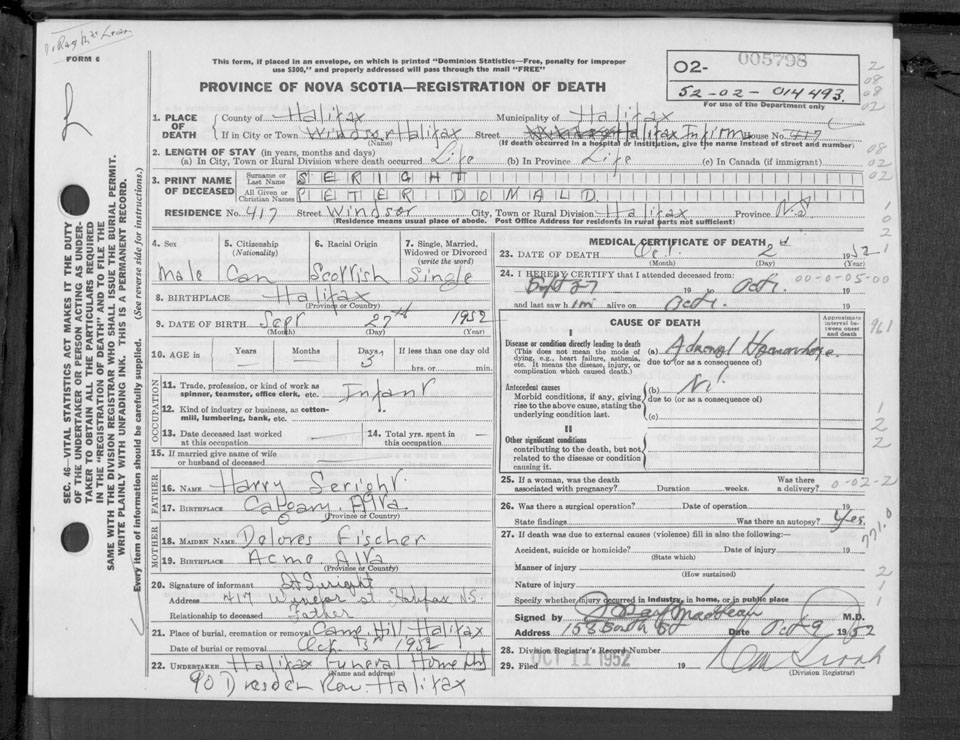 FORM 6
This form, if placed in an envelope, on which is printed "Dominion Statistics—Free, penalty for improper
use $300," and properly addressed will pass through the mail "FREE"
PROVINCE OF NOVA SCOTIA—REGISTRATION OF DEATH
02- 005798
52-02-014493.
For use of the Department only
SEC. 46—VITAL STATISTICS ACT MAKES IT THE DUTY
OF THE UNDERTAKER OR PERSON ACTING AS UNDER-
TAKER TO OBTAIN ALL THE PARTICULARS REQUIRED
IN THE "REGISTRATION OF DEATH" AND TO FILE THE
SAME WITH THE DIVISION REGISTRAR WHO SHALL ISSUE THE BURIAL PERMIT.
WRITE PLAINLY WITH UNFADING INK. THIS IS A PERMANENT RECORD.
Every item of information should be carefully supplied. (See reverse side for instructions.)
1. PLACE OF DEATH
County of Halifax Municipality of Halifax
If in City or Town Windsor Halifax Street Halifax Infirm House No. 417
(Name) (If death occurred in a hospital or institution, give the name instead of street and number)
2. LENGTH OF STAY (in years, months and days)
(a) In City, Town or Rural Division where death occurred Life (b) In Province Life (c) In Canada (if immigrant)
3. PRINT NAME OF DECEASED
Surname or Last Name SERIGHT
All Given or Christian Names PETER DONALD
RESIDENCE No. 417 Street Windsor City, Town or Rural Division Halifax Province N.S
(Residence means usual place of abode. Post Office Address for residents in rural parts not sufficient)
4. Sex
Male
5. Citizenship (Nationality)
Can
6. Racial Origin
Scottish
7. Single, Married, Widowed or Divorced (write the word)
Single
8. BIRTHPLACE Halifax
(Province or Country)
9. DATE OF BIRTH Sept 27th 1952
(Month) (Day) (Year)
10. AGE in Years Months Days 5 If less than one day old
hrs. or min.
OCCUPATION
11. Trade, profession, or kind of work as
spinner, teamster, office clerk, etc. Infant
12. Kind of industry or business, as cotton-
mill, lumbering, bank, etc.
13. Date deceased last worked
at this occupation
14. Total yrs. spent in
this occupation
15. If married give name of wife
or husband of deceased
FATHER
16. Name Harry Seright
17. BIRTHPLACE Calgary, Alta
(Province or Country)
MOTHER
18. MAIDEN NAME Delores Fischer
19. BIRTHPLACE Acme Alta
(Province or Country)
20. Signature of informant H Seright
Address 417 Windsor st. Halifax N.S.
Relationship to deceased Father
21. Place of burial, cremation or removal Camp Hill Halifax
Date of burial or removal Oct 1952
22. UNDERTAKER Halifax Funeral Home
(Name and address)
90 Dresden Row. Halifax
MEDICAL CERTIFICATE OF DEATH
23. DATE OF DEATH Oct 2d 1952
(Month) (Day) (Year)
24. I HEREBY CERTIFY that I attended deceased from:
Sept 27 19 Oct. 19
00-0-05-00
and last saw him alive on Oct. 19
CAUSE OF DEATH
Approximate interval between onset and death
I
Disease or condition directly leading to death
(This does not mean the mode of
dying, e.g., heart failure, asthenia,
etc. It means the disease, injury, or
complication which caused death.)
(a) Adrenal Haemorrhage
due to (or as a consequence of)
Antecedent causes
Morbid conditions, if any, giving
rise to the above cause, stating the
underlying condition last.
(b) Nil
due to (or as a consequence of)
(c)
II
Other significant conditions
contributing to the death, but not
related to the disease or condition
causing it.
25. If a woman, was the death
associated with pregnancy? Duration weeks. Was there a delivery? 0-02-2
26. Was there a surgical operation? Date of operation 19
State findings Was there an autopsy? Yes.
27. If death was due to external causes (violence) fill in also the following:—
Accident, suicide or homicide? Date of injury 19
(State which)
Manner of injury
(How sustained)
Nature of injury
Specify whether injury occurred in industry, in home, or in public place
Signed by MacLean M.D.
Address 158 South St Date Oct 9 1952
28. Division Registrar's Record Number
29. Filed OCT 11 1952 19
(Division Registrar)
961
771.0